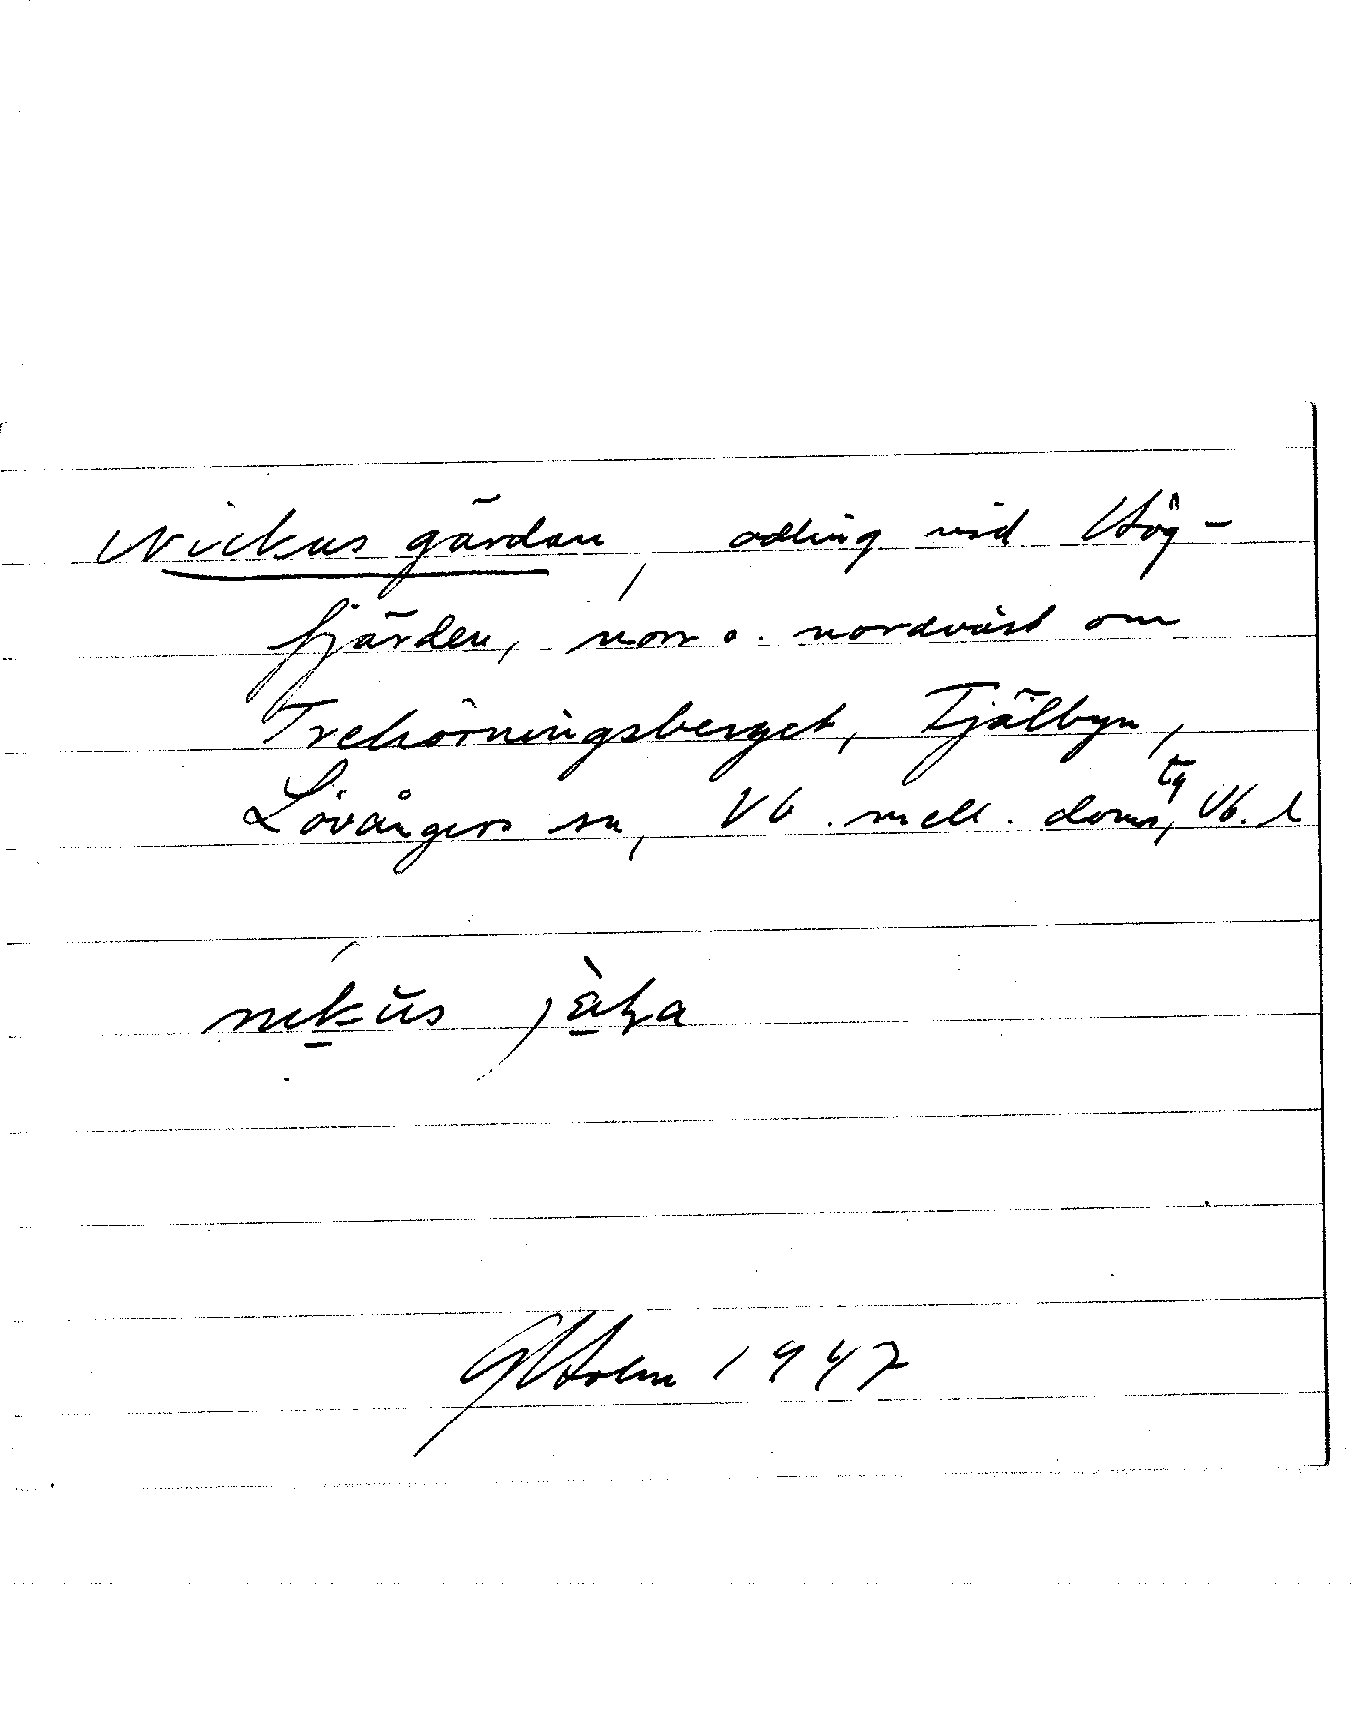 Nickus gärdan, odling vid Hög-
fjärden, norr o. nordväst om
Trehörningsberget, Fjälbyn,
Lövångers sn, Vb. mell. doms, tg Vb. l
nikus
GHolm 1947